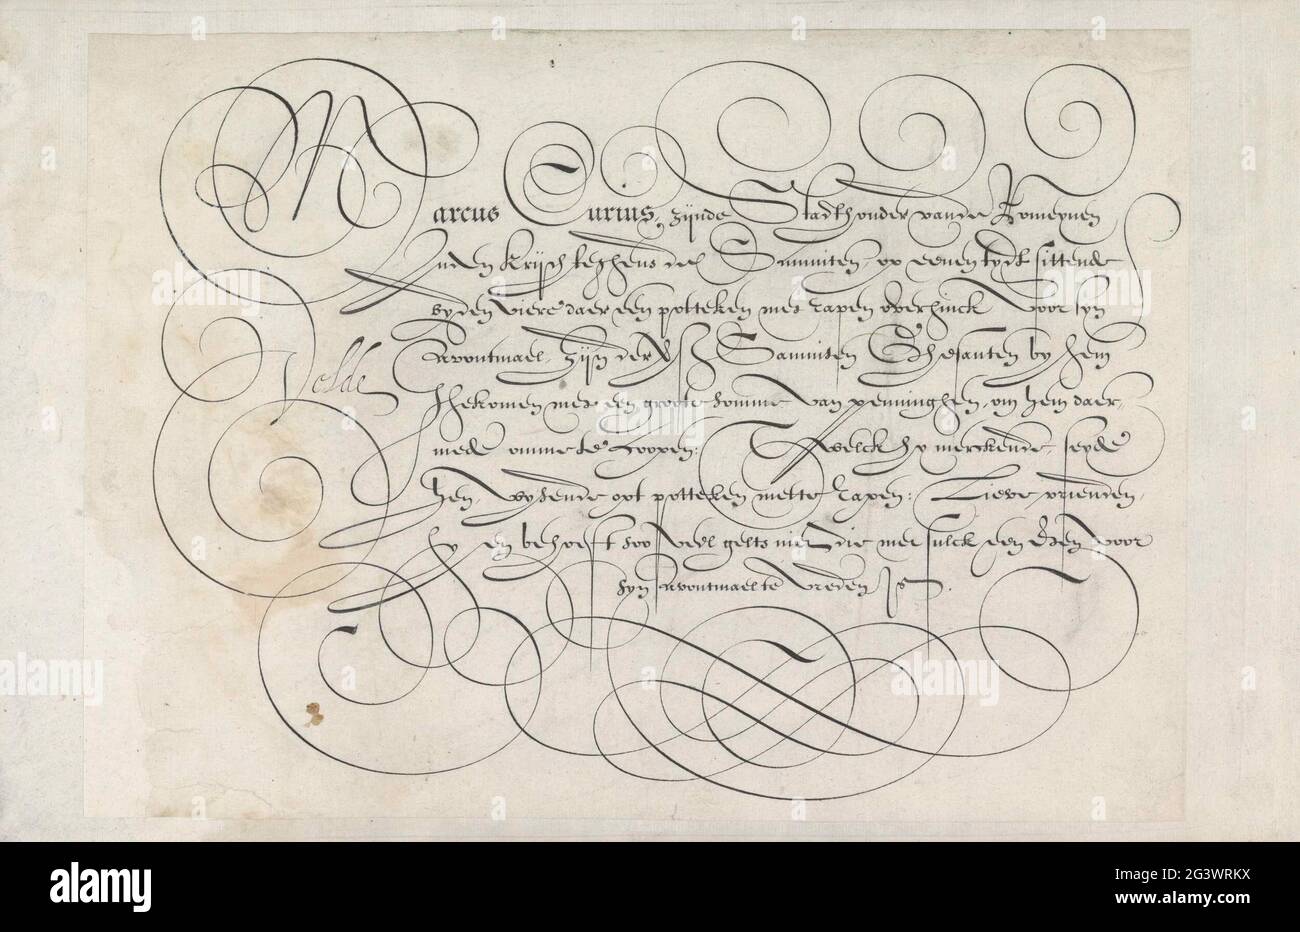 Marcus Curius, zijnde Stadthouder vande Romeynen
inden krijch teghens de Samniten, op eenen tydt sittende
by den viere daer een potteken met rapen over hinck voor syn
Avontmael, zijn der Samniten Ghesanten by hem
ghekomen met een groote somme van penninghen, om hem daer
mede omme te coopen: Twelck hy merckende, seyde
hen, wysende opt potteken mette rapen: Lieve vrienden,
hy en behoeft soo veel gelts niet die met sulck een Eten voor
syn avontmael te vreden is.
Velde
alamy
alamy
Image ID: 2G3WRKX
www.alamy.com